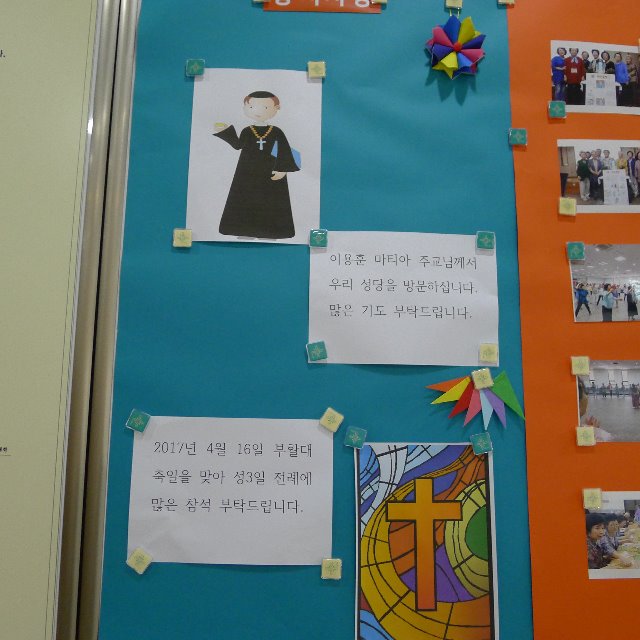 이용훈 마티아 주교님께서
우리 성당을 방문하십니다.
많은 기도 부탁드립니다.
2017년 4월 16일 부활대
축일을 맞아 성3일 전례에
많은 참석 부탁드립니다.